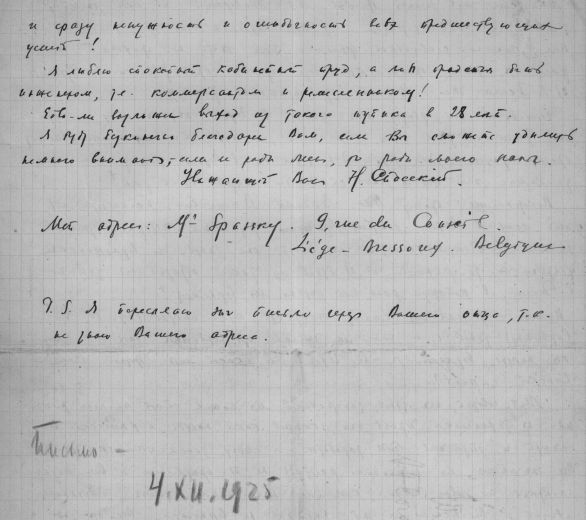 и сразу ненужность и ошибочность всех предшествующих
усилий!
Я люблю спокойный кабинетный труд, а мне придется быть
инженером, т.е. коммерсантом и ремесленником!
Есть-ли возможный выход из такого тупика в 28 лет.
Я буду бесконечно благодарен Вам, если Вы сможете уделить
немного внимания, если и не ради меня, то ради моего
Уважающий Вас Н. Спасский.
Мой адрес: Mr Spassky. 9, rue du Conseil.
Liége - Bressoux. Belgique
P.S. Я пересылаю это письмо через Вашего отца, т.к.
не знаю Вашего адреса.
Письмо -
4.XII.1925